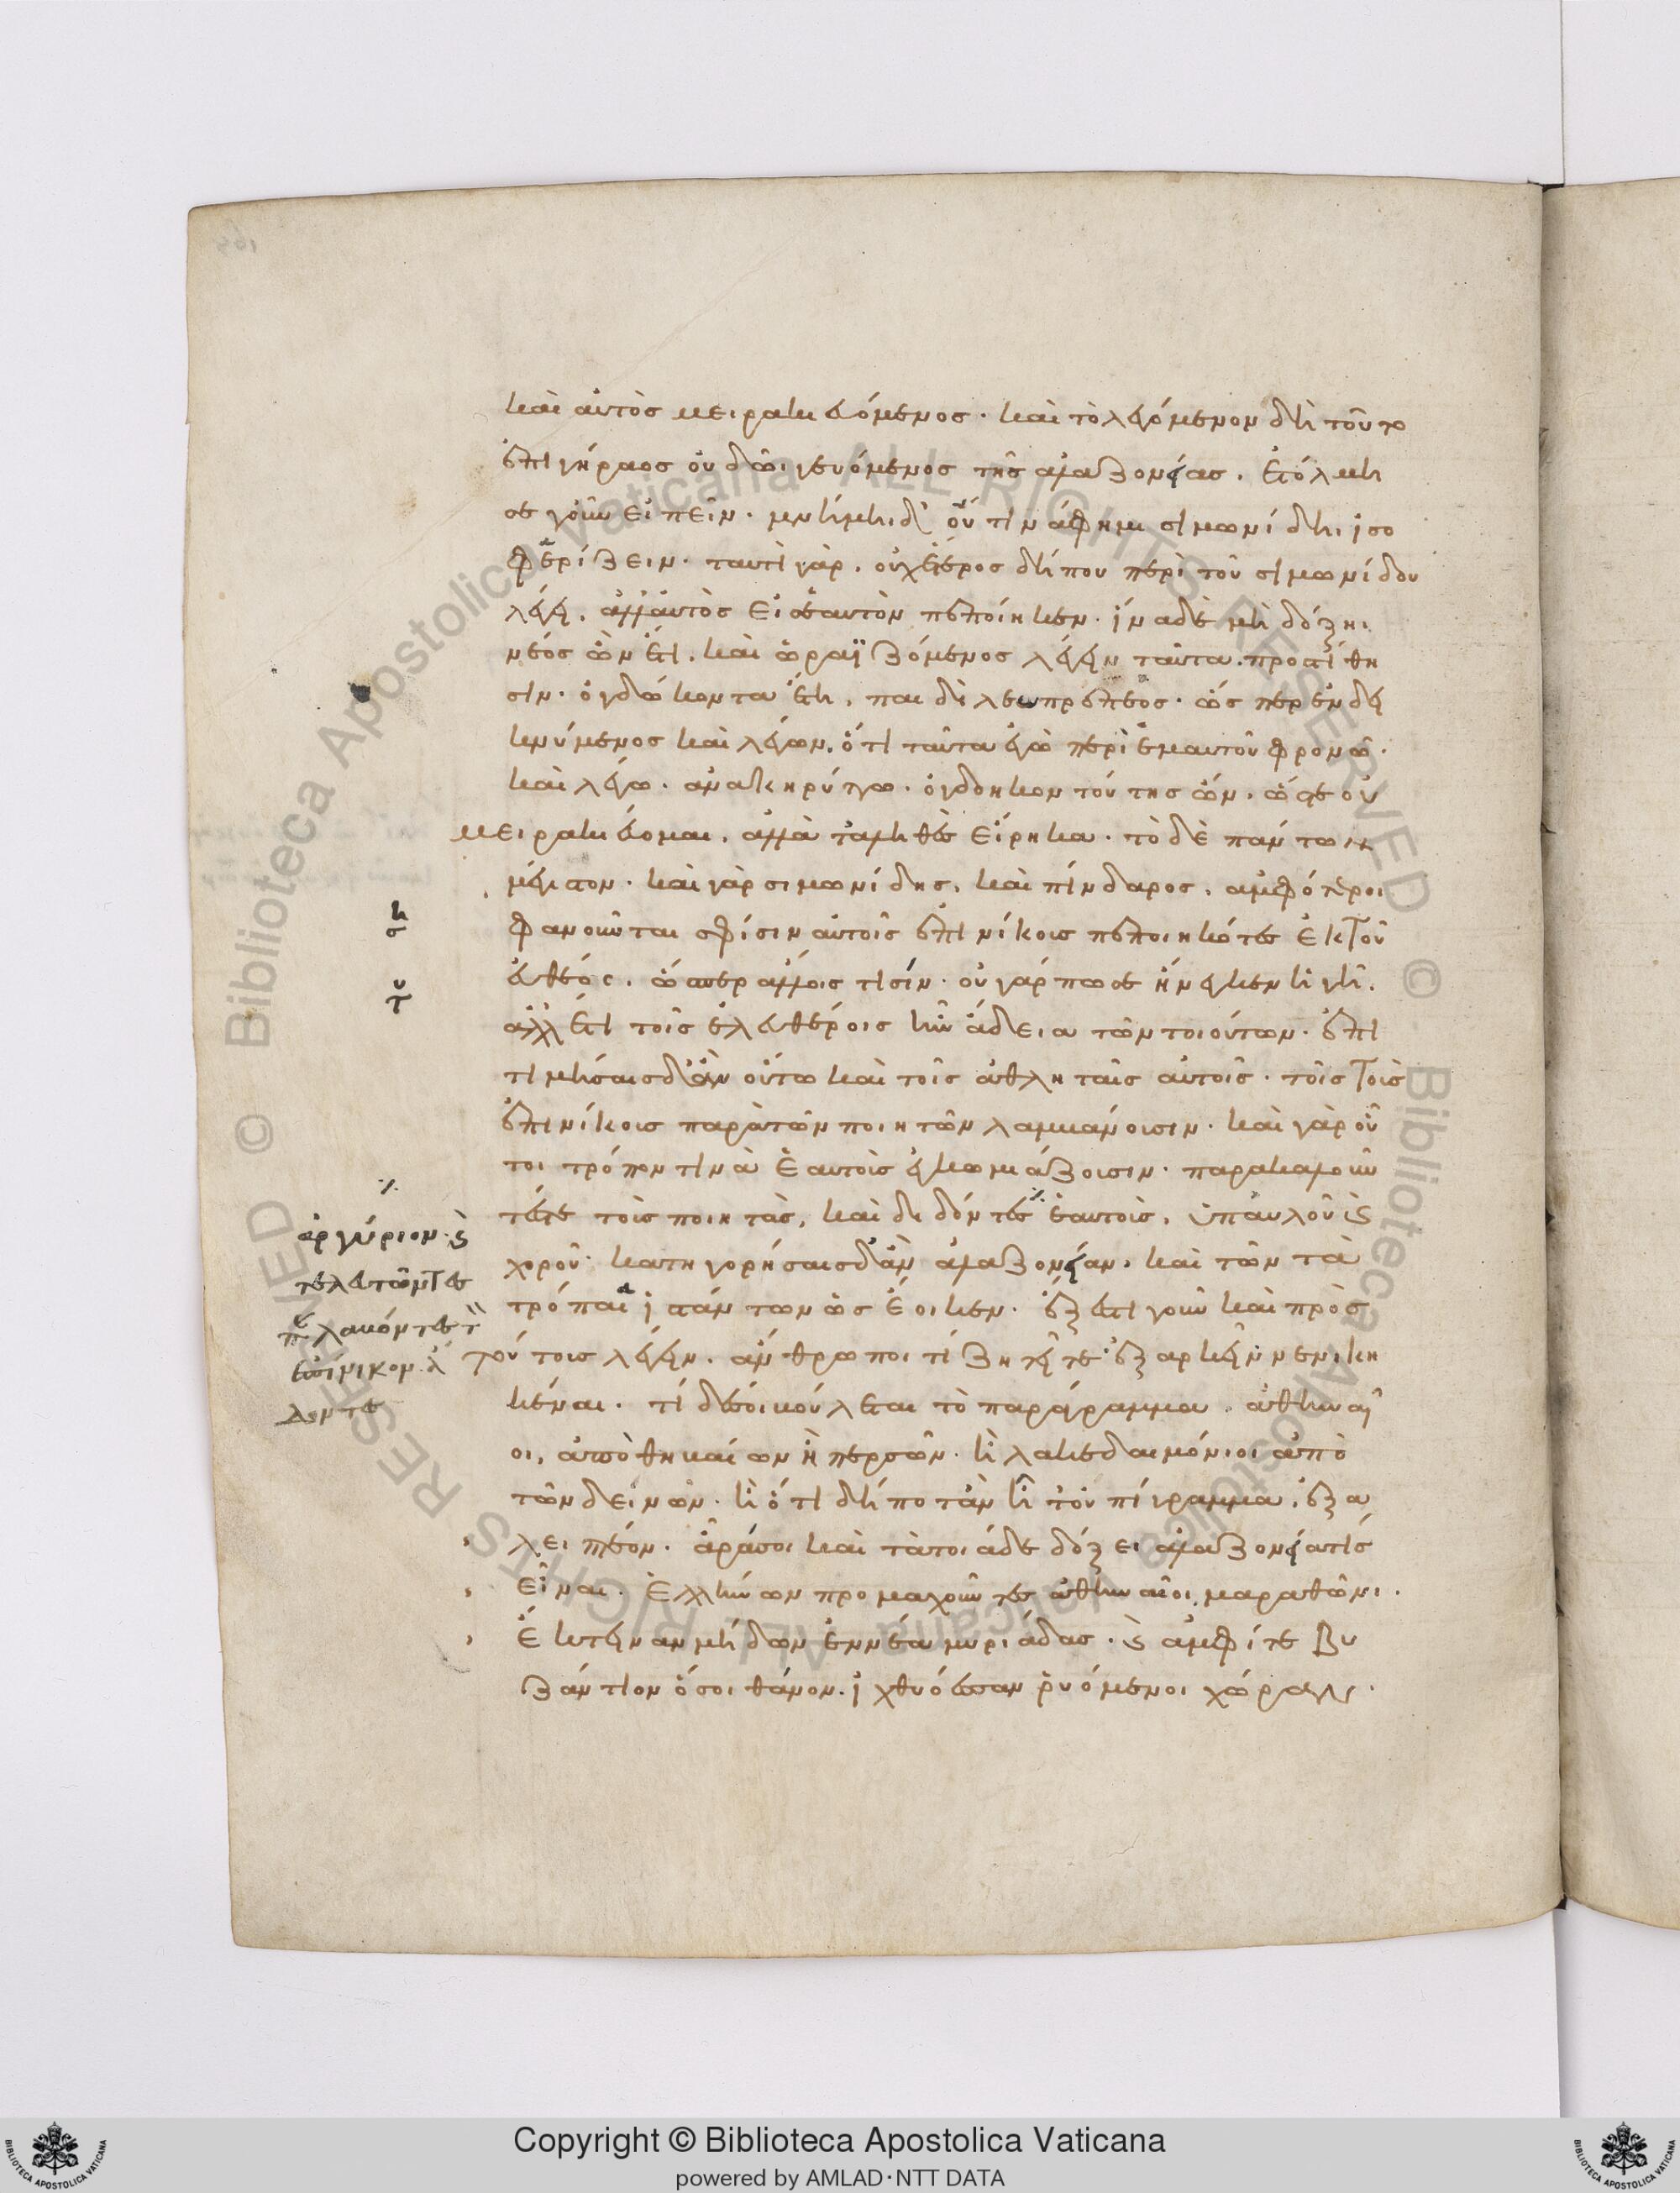 καὶ αὐτὸς μειρακιευόμενος. καὶ τὸ λεγόμενον δὴ τοῦτο
ἐπὶ γήραος οὐδῶι γευόμενος τῆς ἀλαζονείας. ἐτόλμη
σε γοῦν εἰπεῖν. μνήμηι δ' οὔτινά φημι σιμωνίδηι ἰσο
φερίζειν. ταυτὶ γὰρ, οὐχ ἕτερος δήπου περὶ τοῦ σιμωνίδου
λέγει. ἀλλ' αὐτὸς εἰς ἑαυτὸν πεποίηκεν. ἵνα δὲ μὴ δόξηι
νέος ὢν ἔτι, καὶ ὡραϊζόμενος λέγειν ταῦτα. προστίθη
σιν. ὀγδωκονταέτη, παιδὶ λεωπρέπεος. ὥσπερ ἐνδει
κνύμενος καὶ λέγων, ὅτι ταῦτα ἐγὼ περὶ ἐμαυτοῦ φρονῶ.
καὶ λέγω. ἀνακηρύττω. ὀγδοηκοντούτης ὤν. ὥστε οὐ
μειρακιεύομαι, ἀλλὰ τἀληθὲς εἴρηκα. τὸ δὲ πάντων
μέγιστον. καὶ γὰρ σιμωνίδης, καὶ πίνδαρος, ἀμφότεροι
φανοῦνται σφίσιν αὐτοῖς ἐπινίκους πεποιηκότες ἐκ τοῦ
εὐθέος. ὥσπερ ἄλλοις τισίν. οὐ γάρ πως ἤνεγκεν ἡ γῆ.
ἀλλ' ἔτι τοῖς ἐλευθέροις ἦν ἄδεια τῶν τοιούτων. ἐπι
τιμήσαις δ' ἂν οὕτω καὶ τοῖς ἀθληταῖς αὐτοῖς. τοῖς τοὺς
ἐπινίκους παρὰ τῶν ποιητῶν λαμβάνουσιν. καὶ γὰρ οὗ
τοι τρόπον τινὰ ἑαυτοὺς ἐγκωμιάζουσιν. παρακαλοῦν
τές τε τοὺς ποιητάς, καὶ διδόντες ἑαυτοὺς, ὑπ' αὐλοῦ καὶ
χοροῦ. κατηγορήσαις δ' ἂν ἀλαζονείαν, καὶ τῶν τὰ
τρόπαια ἱστάντων ὡς ἔοικεν. ἔξεστι γοῦν καὶ πρὸς
τούτους λέγειν. ἄνθρωποι τί ζητεῖτε; ἐξαρκεῖ νενικη
κέναι. τί δέ σοι βούλεται τὸ παρεπίγραμμα. ἀθηναῖ
οι, ἀπὸ θηβαίων ἢ περσῶν. ἢ λακεδαιμόνιοι ἀπὸ
τῶν δεινων. ἢ ὅτι δήποτ' ἂν ἦ τοὐπίγραμμα, ἐξα
λειπτέον. ἆρά σοι καὶ τὰ τοιάδε δόξει ἀλαζονεία τίς
εἶναι. Ἑλλήνων προμαχοῦντες ἀθηναῖοι μαραθῶνι.
Ἔκτειναν μήδων ἐννέα μυριάδας. καὶ ἀμφί τε βυ
ζάντιον ὅσοι θάνον. ἰχθυόεσσαν ῥυόμενοι χώραν.
ἀργύριον. καὶ
τελευτῶντες